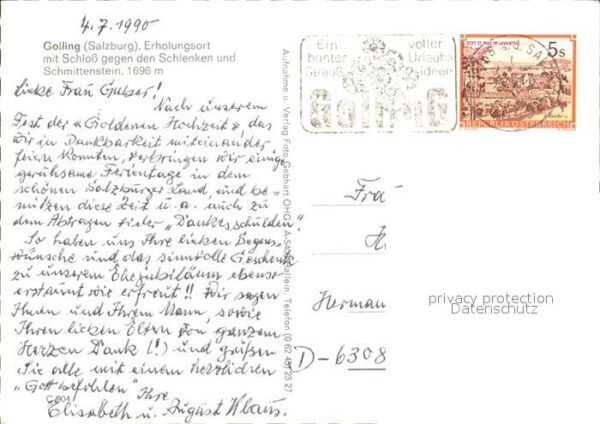 4.7.1990
Golling (Salzburg), Erholungsort
mit Schloß gegen den Schlenken und
Schmittenstein, 1696 m
Liebe Frau
Nach unserem
Fest der "Goldenen Hochzeit", das
wir in Dankbarkeit miteinander
feiern konnten, verbringen wir einige
geruhsame Ferientage in dem
schönen Salzburger Land und be=
nützen diese Zeit u.a. auch zu
dem Abtragen vieler "Dankesschulden".
So haben uns Ihre lieben Segens=
wünsche und das sinnvolle Geschenk
zu unserem Ehejubiläum ebenso
erstaunt wie erfreut!! Wir sagen
Ihnen und Ihrem Mann, sowie
Ihren lieben Eltern von ganzem
Herzen Dank (!) und grüßen
Sie alle mit einem herzlichen
"Gott befohlen" Ihre
Elisabeth u. August Klaus.
C 904
Aufnahme u. Verlag Foto Gebhart OHG, A-5400 Hallein, Telefon (0 62 45) 23 27
Ein voller
bunter Urlaubs
Strauß ideen
Golling
STIFT ST. PAUL IM LAVANTTAL
5 S
REPUBLIK ÖSTERREICH
Frau
H
Herman
D-6308
privacy protection
Datenschutz